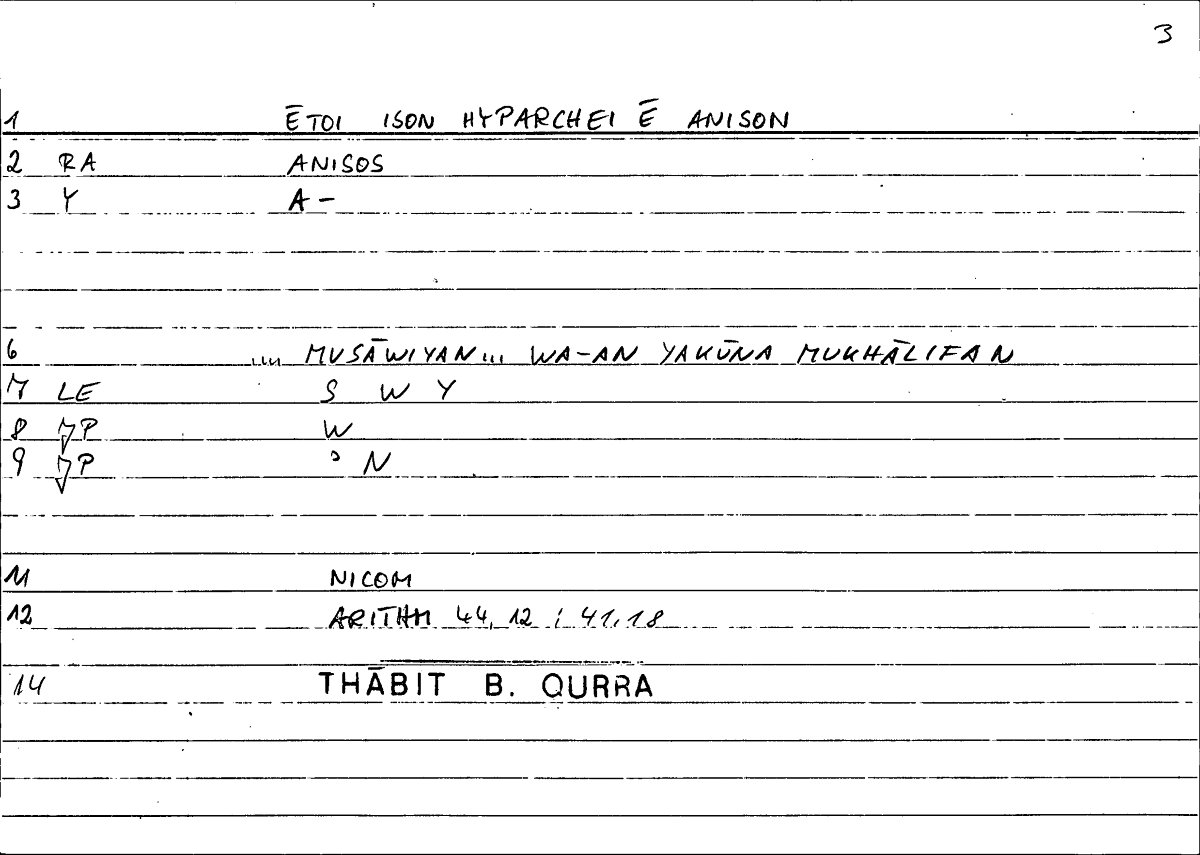 3
1 ĒTOI ISON HYPARCHEI Ē ANISON
2 RA ANISOS
3 Y A-
6 .... MUSĀWIYAN... WA-AN YAKŪNA MUKHĀLIFAN
7 LE S W Y
8 JP W
9 JP ʾ N
11 NICOM
12 ARITHM 44,12 ; 41,18
14 THĀBIT B. QURRA